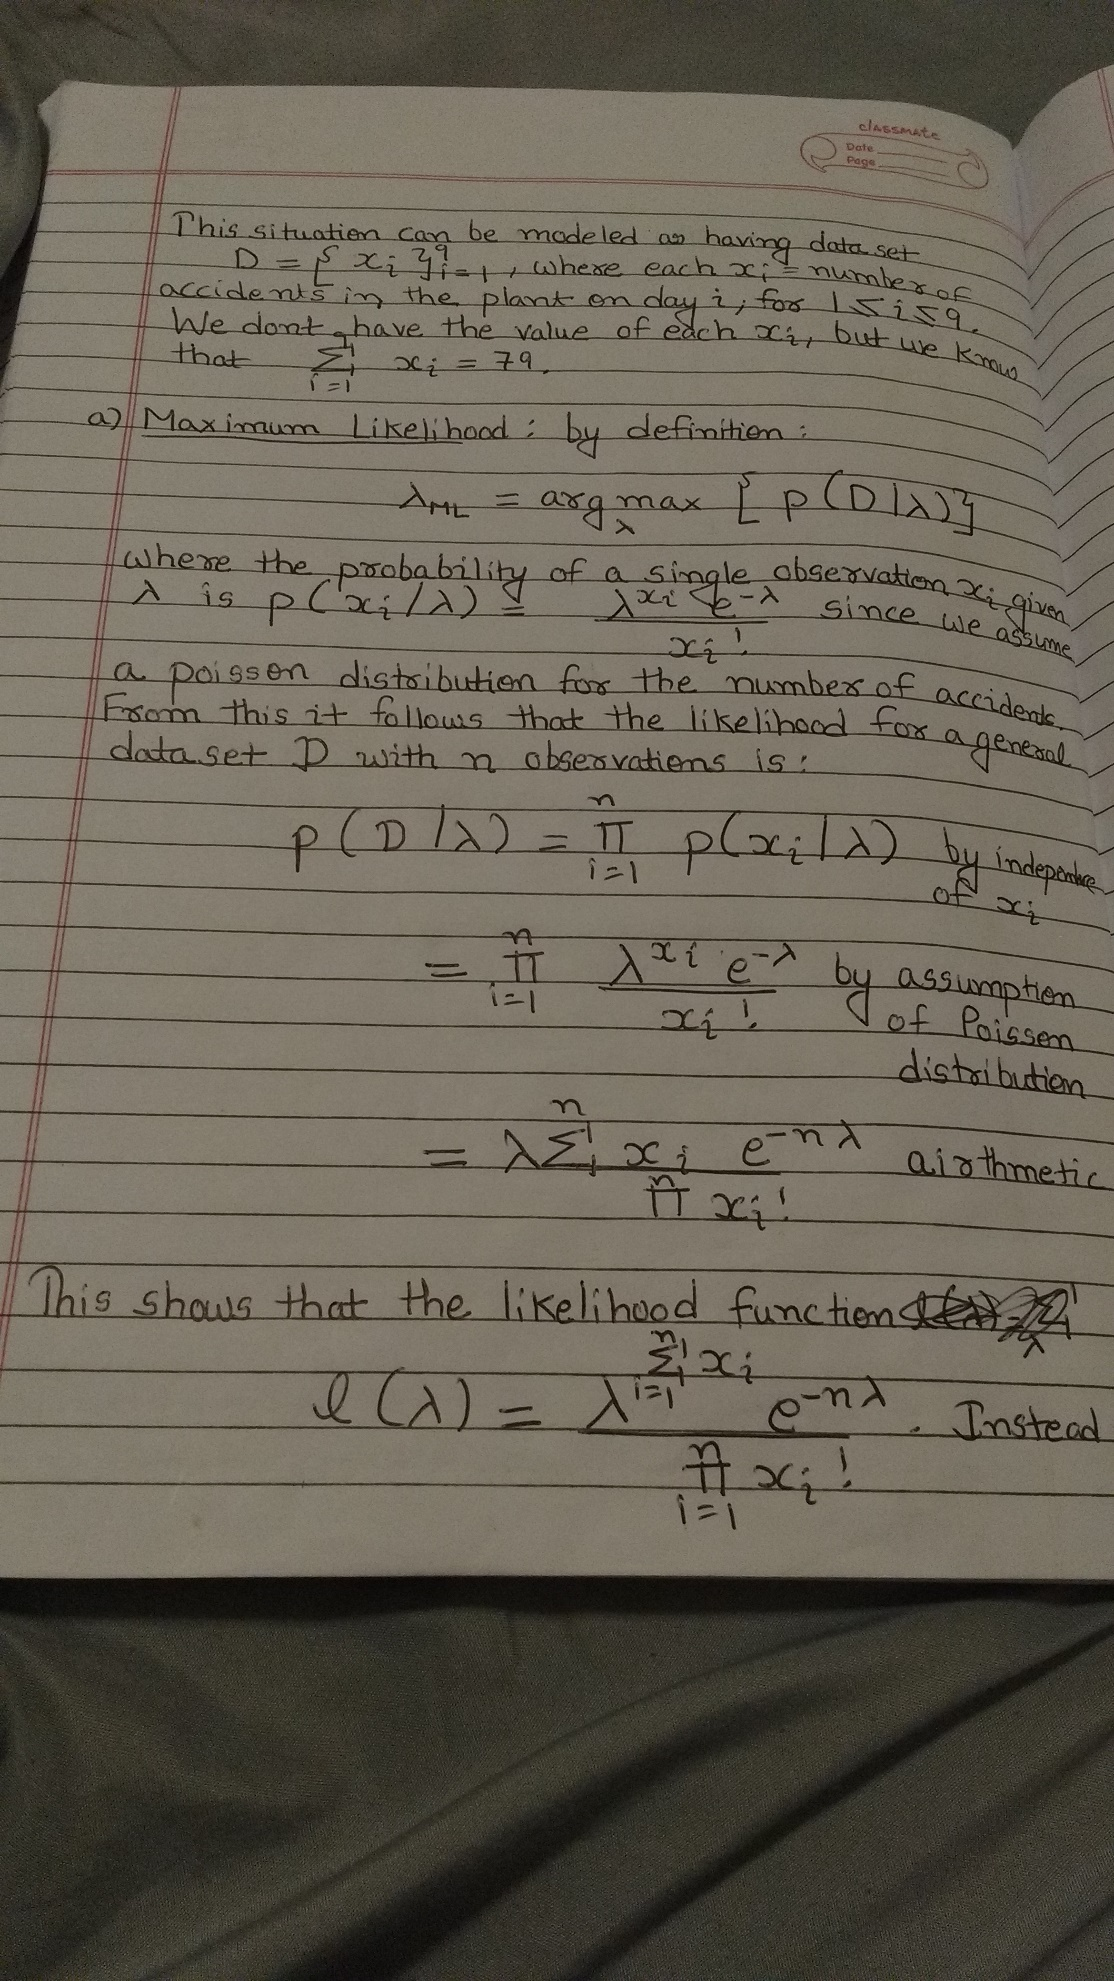 classmate
Date
Page
This situation can be modeled as having data set
D = { xi }⁹i=1, where each xi = number of
accidents in the plant on day i, for 1≤i≤9.
We dont have the value of each xi, but we know
that Σ i=1 xi = 79.
a) Maximum Likelihood: by definition:
λML = arg max λ [ p(D|λ)]
where the probability of a single observation xi given
λ is p(xi/λ) = λ^xi e^-λ / xi! since we assume
a poisson distribution for the number of accidents.
From this it follows that the likelihood for a general
data set D with n observations is:
p(D|λ) = n Π i=1 p(xi|λ) by independence
of xi
= n Π i=1 λ^xi e^-λ / xi! by assumption
of Poisson
distribution
= λ^Σ^n xi e^-nλ / n Π xi! airthmetic
This shows that the likelihood function
l(λ) = λ^(n Σ i=1 xi) e^-nλ / n Π i=1 xi! . Instead